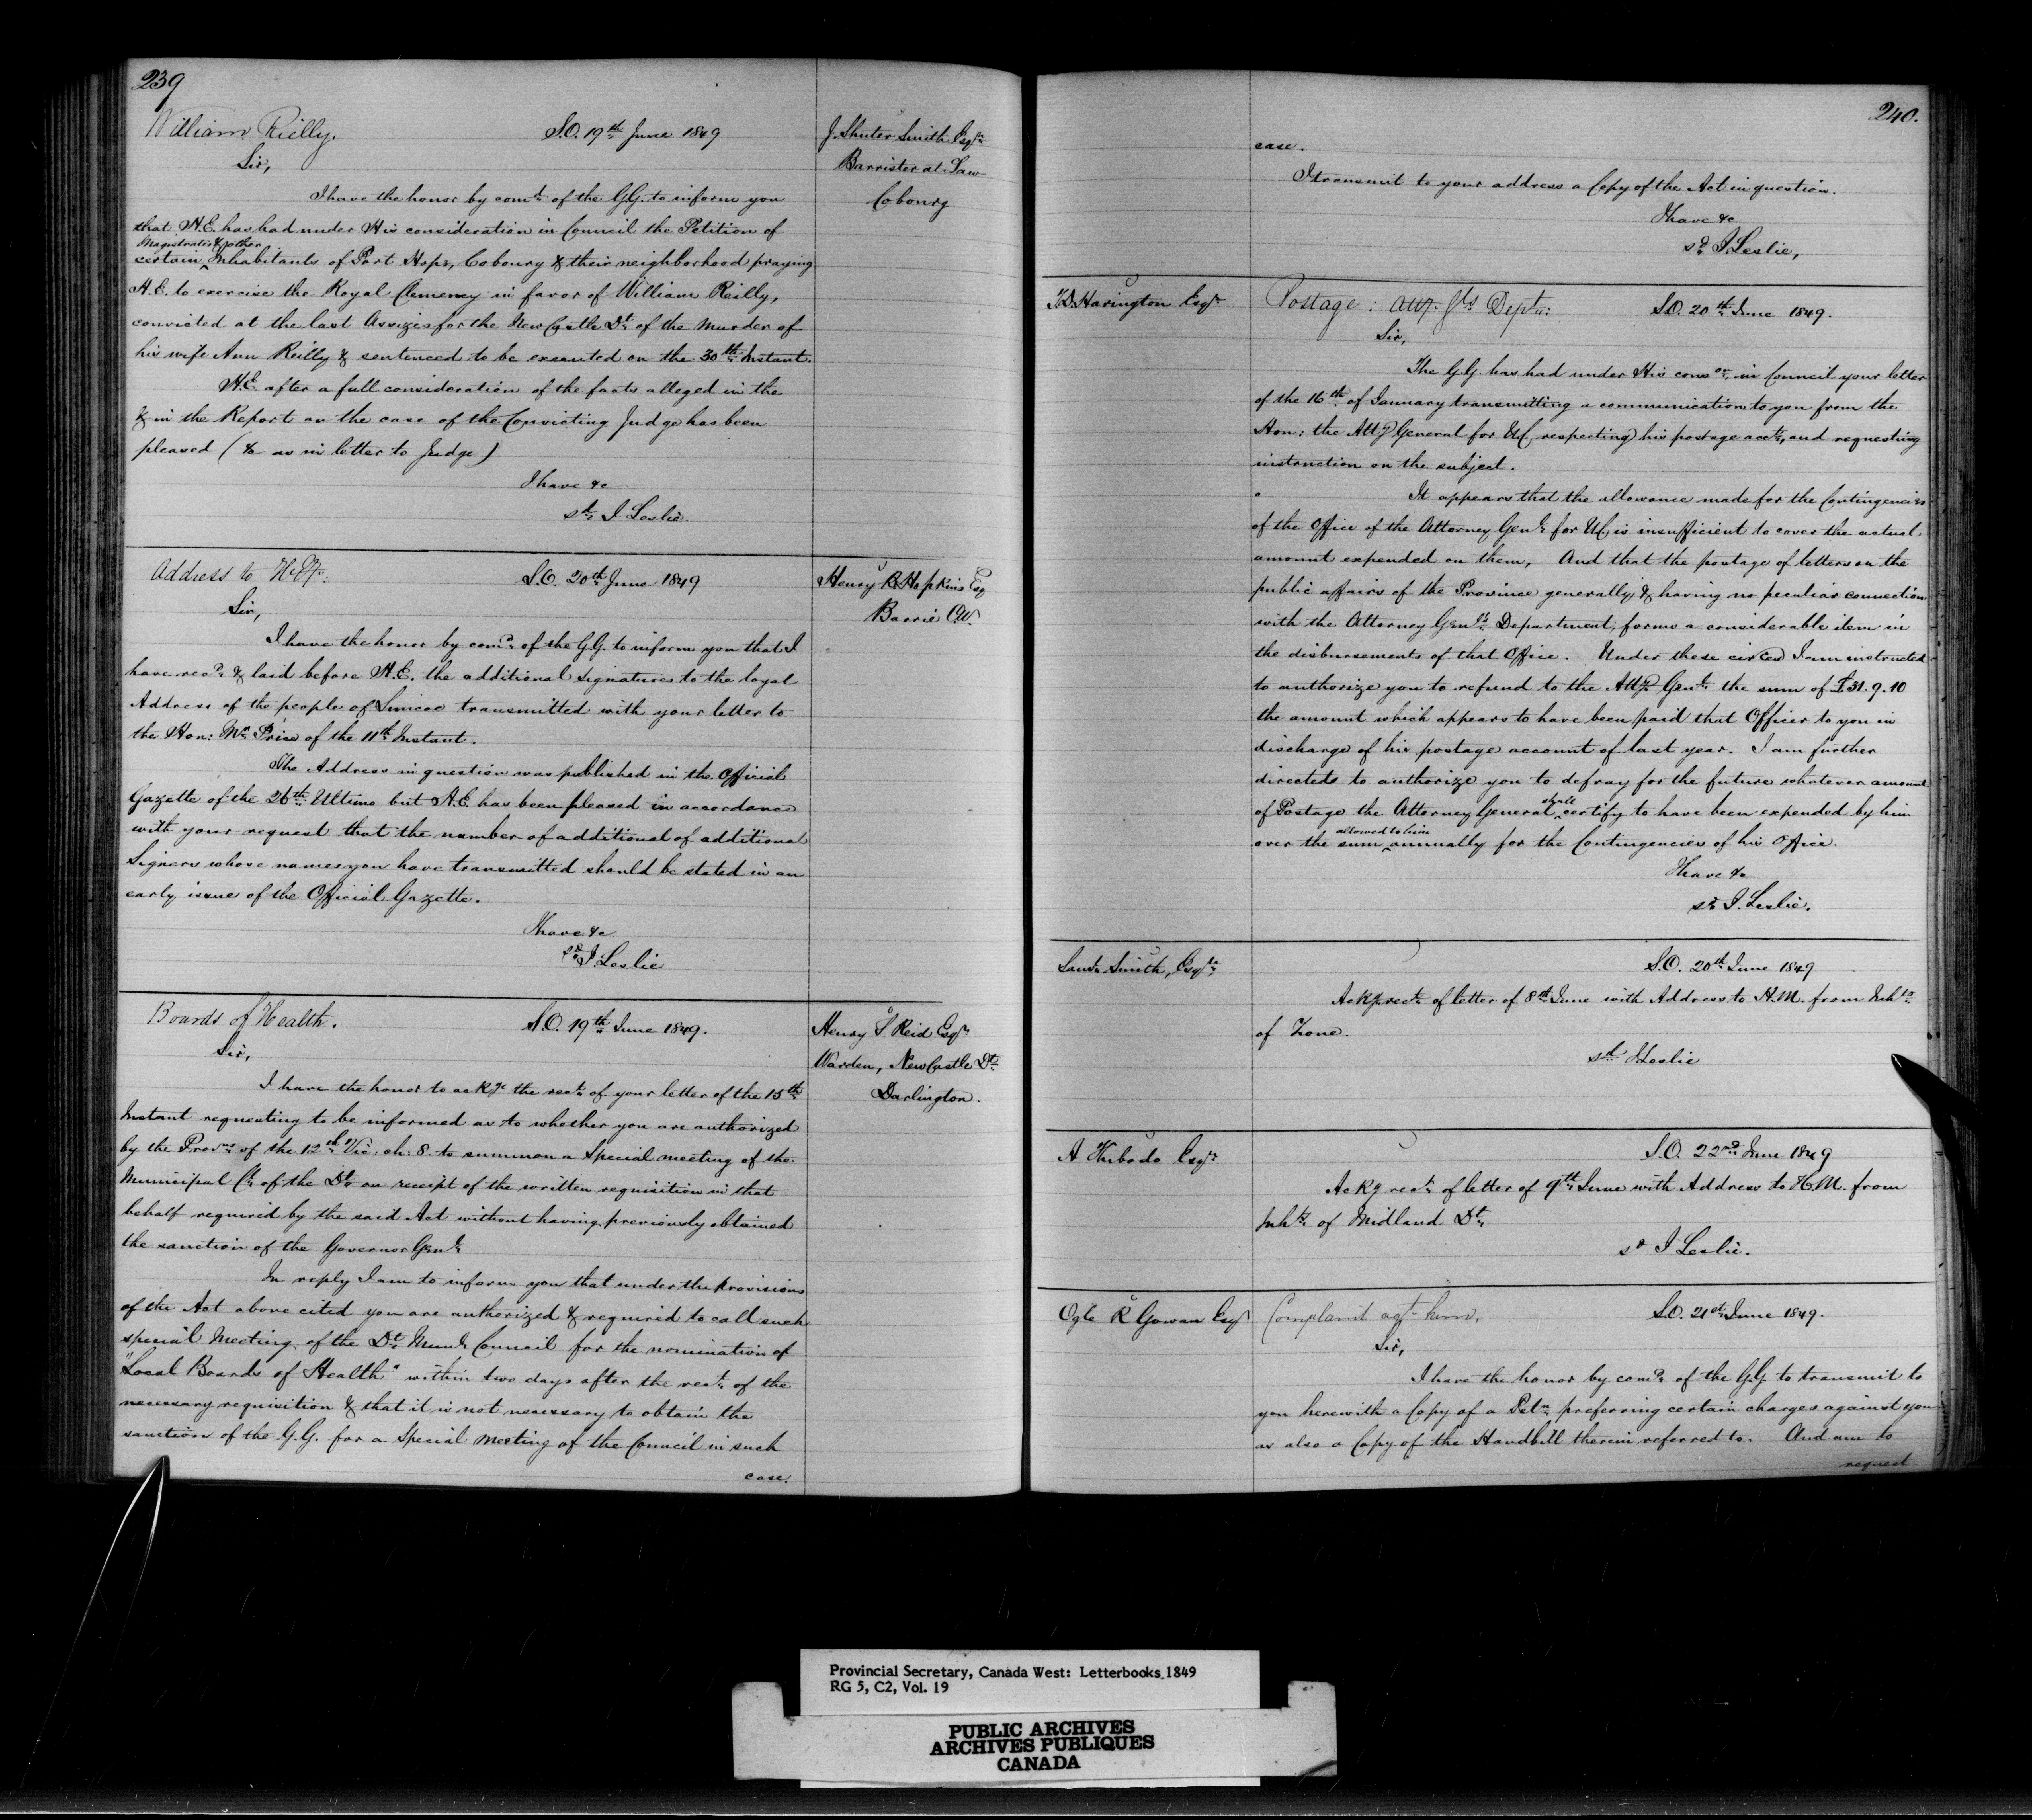 239
William Rielly. S.O. 19th June 1849
J. Shuter Smith Esqr
Barrister at Law
Cobourg
Sir,
I have the honor by comd of the G.G. to inform you
that H.E. has had under His consideration in Council the Petition of
Magistrates & other
certain Inhabitants of Port Hope, Cobourg & their neighborhood praying
H.E. to exercise the Royal Clemency in favor of William Reilly,
convicted at the last Assizes for the NewCastle Dt of the Murder of
his wife Ann Reilly & sentenced to be executed on the 30th Instant.
H.E. after a full consideration of the facts alleged in the
& in the Report on the case of the Convicting Judge has been
pleased (&c as in letter to Judge)
I have &c
sd J Leslie.
Address to H.Ey: S.O. 20th June 1849
Henry B Hopkins Esq
Barrie C.W.
Sir,
I have the honor by comd of the G.G. to inform you that I
have recd & laid before H.E. the additional signatures to the loyal
Address of the people of Simcoe transmitted with your letter to
the Hon: Mr Price of the 11th Instant.
The Address in question was published in the Official
Gazette of the 26th Ultimo but H.E. has been pleased in accordance
with your request that the number of additional of additional
Signers whose names you have transmitted should be stated in an
early issue of the Official Gazette.
I have &c
sd J Leslie
Boards of Health. S.O. 19th June 1849.
Henry S Reid Esqr
Warden, NewCastle Dt
Darlington.
Sir,
I have the honor to ackge the rect of your letter of the 15th
Instant requesting to be informed as to whether you are authorized
by the Provns of the 12th Vic. ch: 8. to summon a Special meeting of the
Municipal Cl of the Dt on receipt of the written requisition in that
behalf required by the said Act without having previously obtained
the sanction of the Governor Genl
In reply I am to inform you that under the provisions
of the Act above cited you are authorized & required to call such
special Meeting of the Dt Munl Council for the nomination of
"Local Boards of Health" within two days after the rect of the
necessary requisition & that it is not necessary to obtain the
sanction of the G.G. for a Special Meeting of the Council in such
case.
240.
case.
I transmit to your address a Copy of the Act in question.
I have &c
sd J Leslie,
T.D. Harington Esqr
Postage: Atty. Gls Dept: S.O. 20th June 1849.
Sir,
The G.G. has had under His conson in Council your letter
of the 16th of January transmitting a communication to you from the
Hon: the Atty General for U.C. respecting his postage acct, and requesting
instruction on the subject.
It appears that the allowance made for the Contingencies
of the Office of the Attorney Genl for U.C. is insufficient to cover the actual
amount expended on them, And that the postage of letters on the
public affairs of the Province generally, & having no peculiar connection
with the Attorney Genls Department, forms a considerable item in
the disbursements of that Office. Under these circes I am instructed
to authorize you to refund to the Atty Genl the sum of £31.9.10
the amount which appears to have been paid that Officer to you in
discharge of his postage account of last year. I am further
directed to authorize you to defray for the future whatever amount
shall
of Postage the Attorney General certify to have been expended by him
allowed to him
over the sum annually for the Contingencies of his Office.
I have &c
sd J. Leslie.
Smith, Esqre
S.O. 20th June 1849
Ackg rect of letter of 8th June with Address to H.M. from Inhts
of Zone.
sd J Leslie
A Thibodo Esqr
S.O. 22nd June 1849
Ackg rect of letter of 9th June with Address to H.M. from
Inhts of Midland Dt
sd J Leslie.
Ogle R Gowan Esqr
Complaint agt him. S.O. 21st June 1849.
Sir,
I have the honor by comd of the G.G. to transmit to
you herewith a Copy of a Petn preferring certain charges against you
as also a Copy of the Handbill therein referred to. And am to
request
Provincial Secretary, Canada West: Letterbooks 1849
RG 5, C2, Vol. 19
PUBLIC ARCHIVES
ARCHIVES PUBLIQUES
CANADA